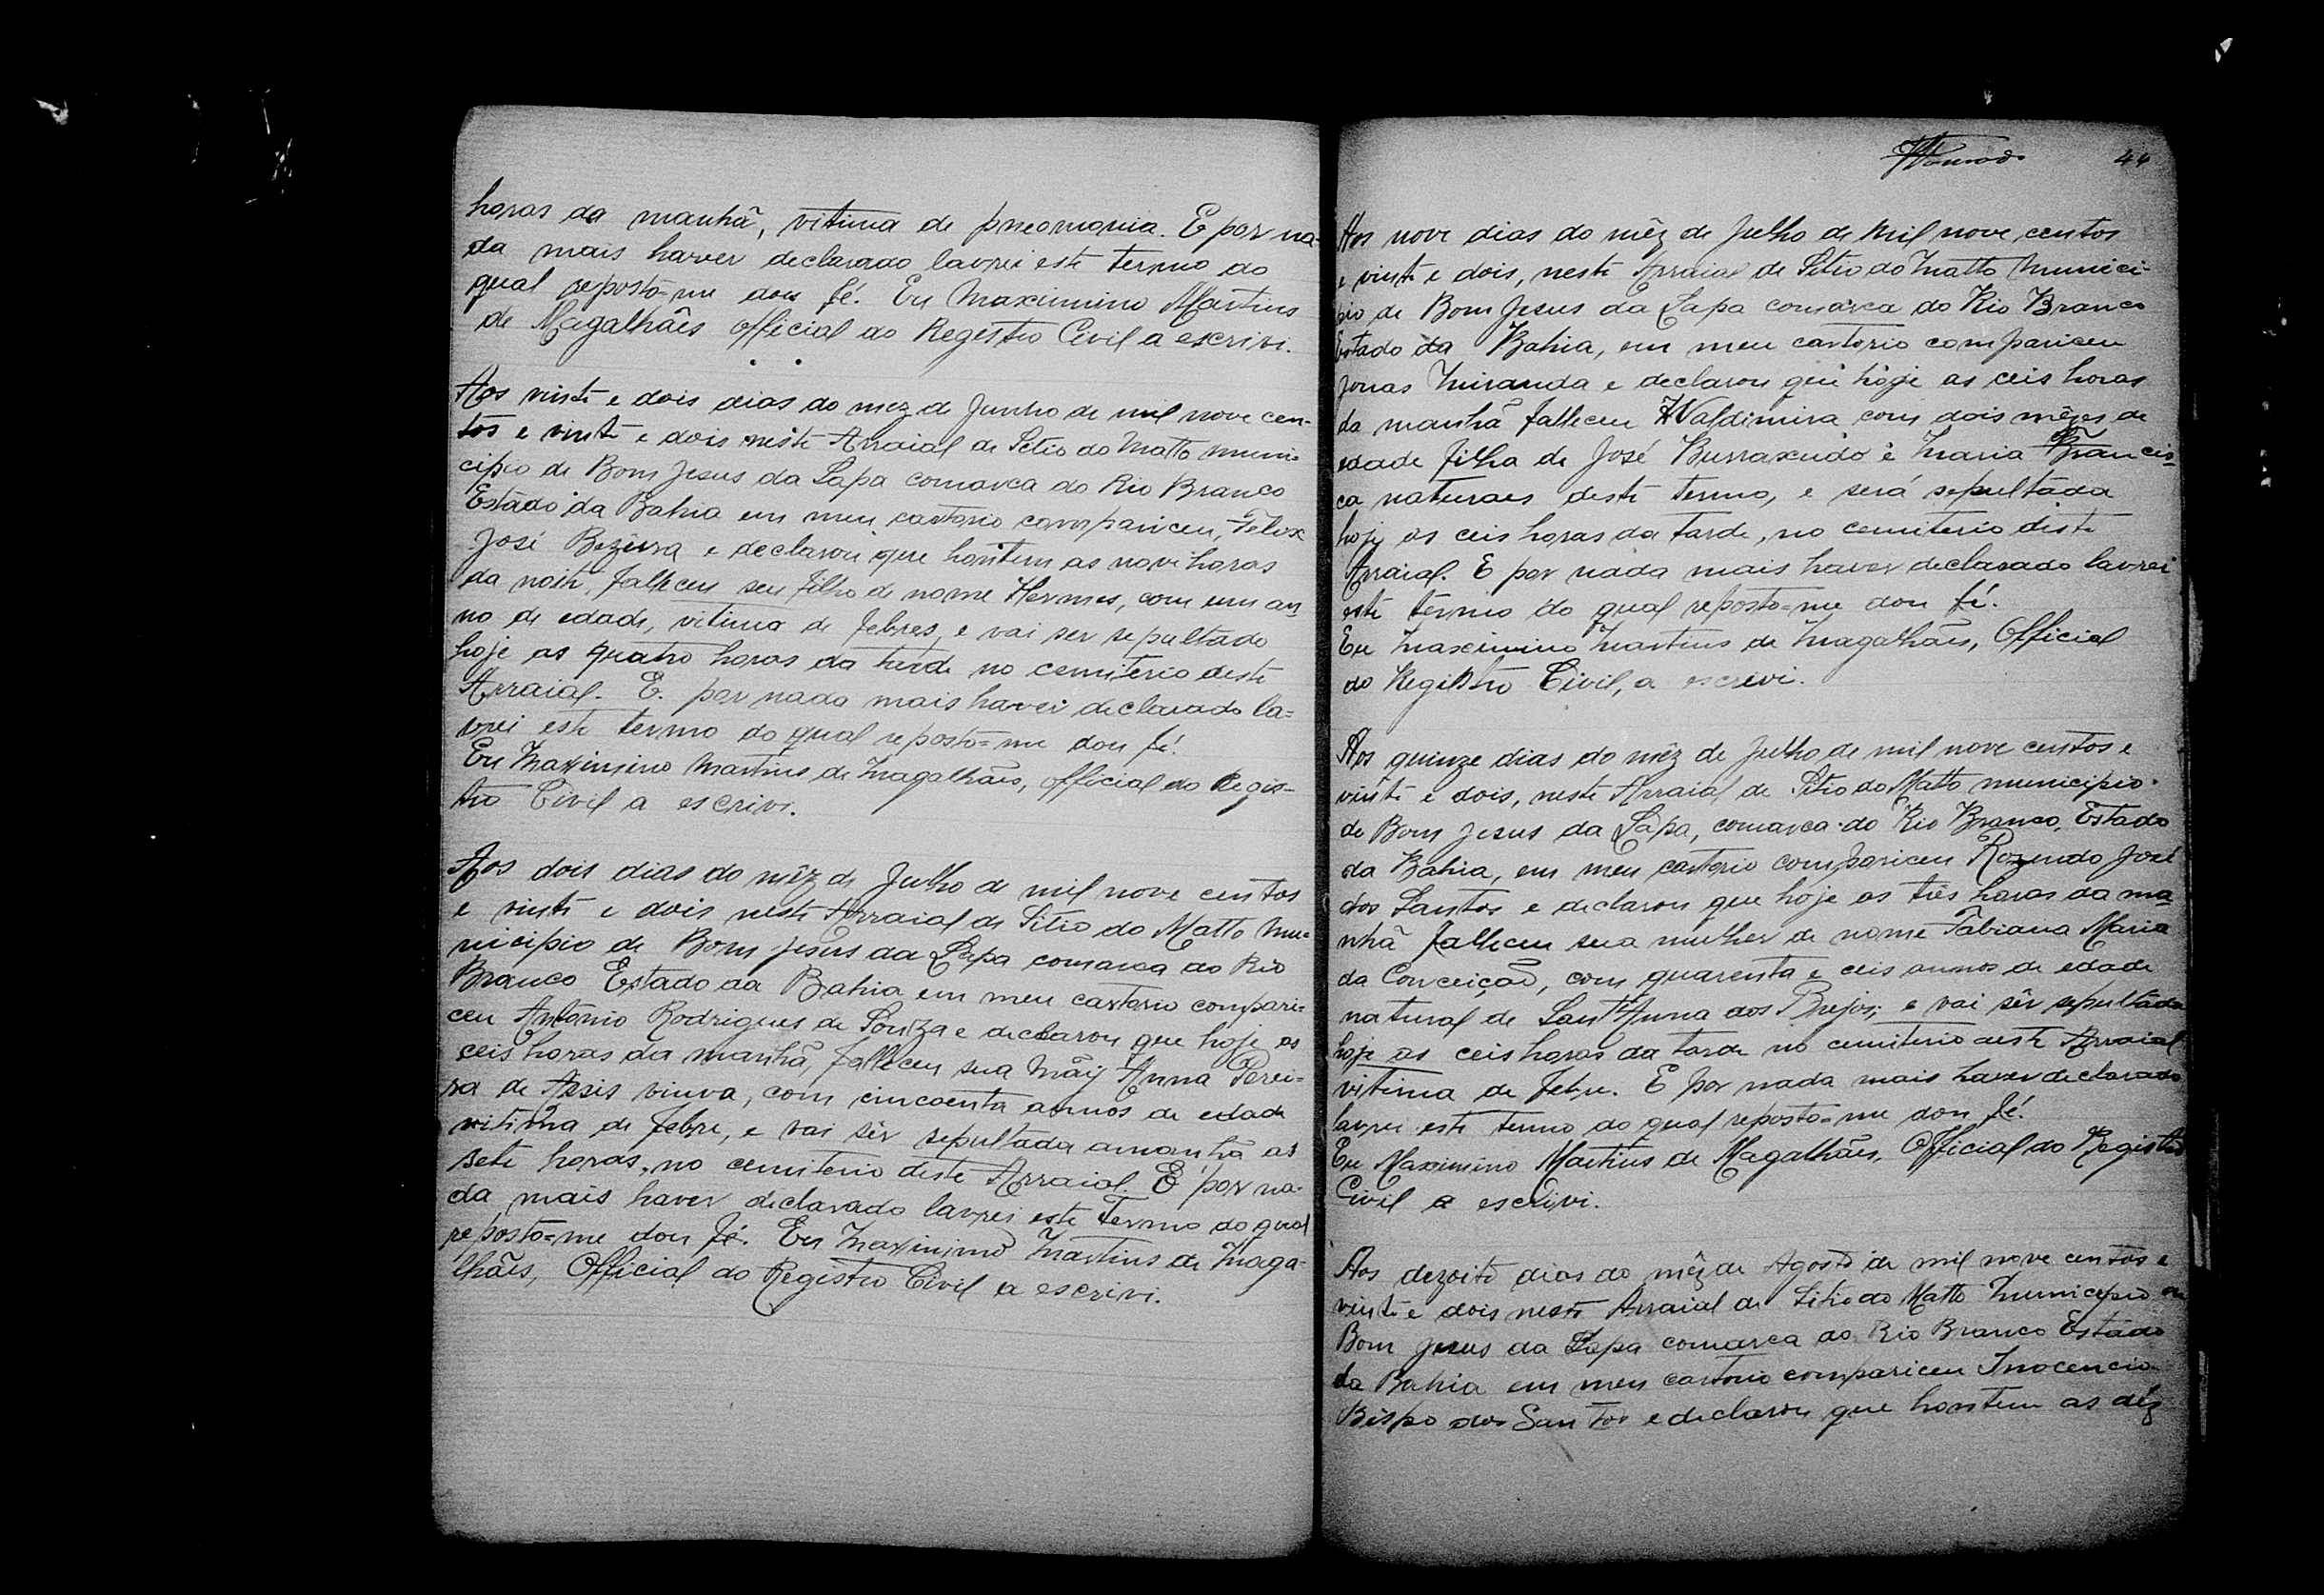 horas da manhã, vitima de pneomonia. E por na-
da mais haver declarado lavrei este termo do
qual reposto-me dou fé. Eu Maximino Martins
de Magalhães official do Registro Civil a escrivi.
Aos vinte e dois dias do mez de Junho de mil nove cen-
tos e vinte e dois neste Arraial de Sitio do Matto muni-
cipio de Bom Jesus da Lapa comarca do Rio Branco
Estado da Bahia em meu cartorio compariceu, Felix
José Bezerra e declarou que hontem as nove horas
da noite, falleceu seu filho de nome Hermes, com um an-
no de edade, vitima de febres, e vai ser sepultado
hoje as quatro horas da tarde no cemiterio deste
Arraial. E. por nada mais haver declarado la=
vrei este termo do qual reposto=me dou fé.
Eu Maximino Martins de Magalhães, official do Regis-
tro Civil a escrivi.
Aos dois dias do mêz de Julho de mil nove centos
e vinte e dois neste Arraial de Sitio do Matto Mu=
nicipio de Bom Jesus da Lapa comarca do Rio
Branco Estado da Bahia em meu cartorio compari=
ceu Antonio Rodrigues de Souza e declarou que hoje as
ceis horas da manhã, falleceu sua Mãy Anna Perei=
ra de Assis viuva, com cincoenta annos de edade
vitima de febre, e vai sêr sepultada amanhã as
sete horas, no cemiterio deste Arraial. E por na-
da mais haver declarado lavrei este Termo do qual
reposto=me dou fé. Eu Maximino Martins de Maga-
lhães, Official do Registro Civil a escrivi.
44
Aos nove dias do mêz de Julho de Mil nove centos
e vinte e dois, neste Arraial de Sitio do Matto Munici-
pio de Bom Jesus da Lapa comarca do Rio Branco
Estado da Bahia, em meu cartorio compariceu
Jonas Miranda e declarou que hoje as ceis horas
da manhã falleceu Waldimira com dois mêzes de
edade filha de José Burraxudo e Maria Francis-
ca naturaes deste termo, e será sepultada
hoje as ceis horas da tarde, no cemiterio deste
Arraial. E por nada mais haver declarado lavrei
este termo do qual reposto=me dou fé.
Eu Maximino Martins de Magalhães, Official
do Registro Civil, a escrivi.
Aos quinze dias do mêz de Julho de mil nove centos e
vinte e dois, neste Arraial de Sitio do Matto municipio
de Bom Jesus da Lapa, comarca do Rio Branco, Estado
da Bahia, em meu cartorio compariceu Rozendo José
dos Santos e declarou que hoje as três horas da ma-
nhã falleceu sua mulher de nome Fabiana Maria
da Conceição, com quarenta e ceis annos de edade
natural de Sant'Anna dos Brejos, e vai sêr sepultada
hoje as ceis horas da tarde no cemiterio deste Arraial
vitima de febre. E por nada mais haver declarado
lavrei este termo do qual reposto=me dou fé.
Eu Maximino Martins de Magalhães, Official do Registro
Civil a escrivi.
Aos dezoito dias do mêz de Agosto de mil nove centos e
vinte e dois neste Arraial de Sitio do Matto Municipio de
Bom Jesus da Lapa comarca do Rio Branco Estado
da Bahia em meu cartorio compariceu Inocencio
Bispo dos Santos e declarou que hontem as déz